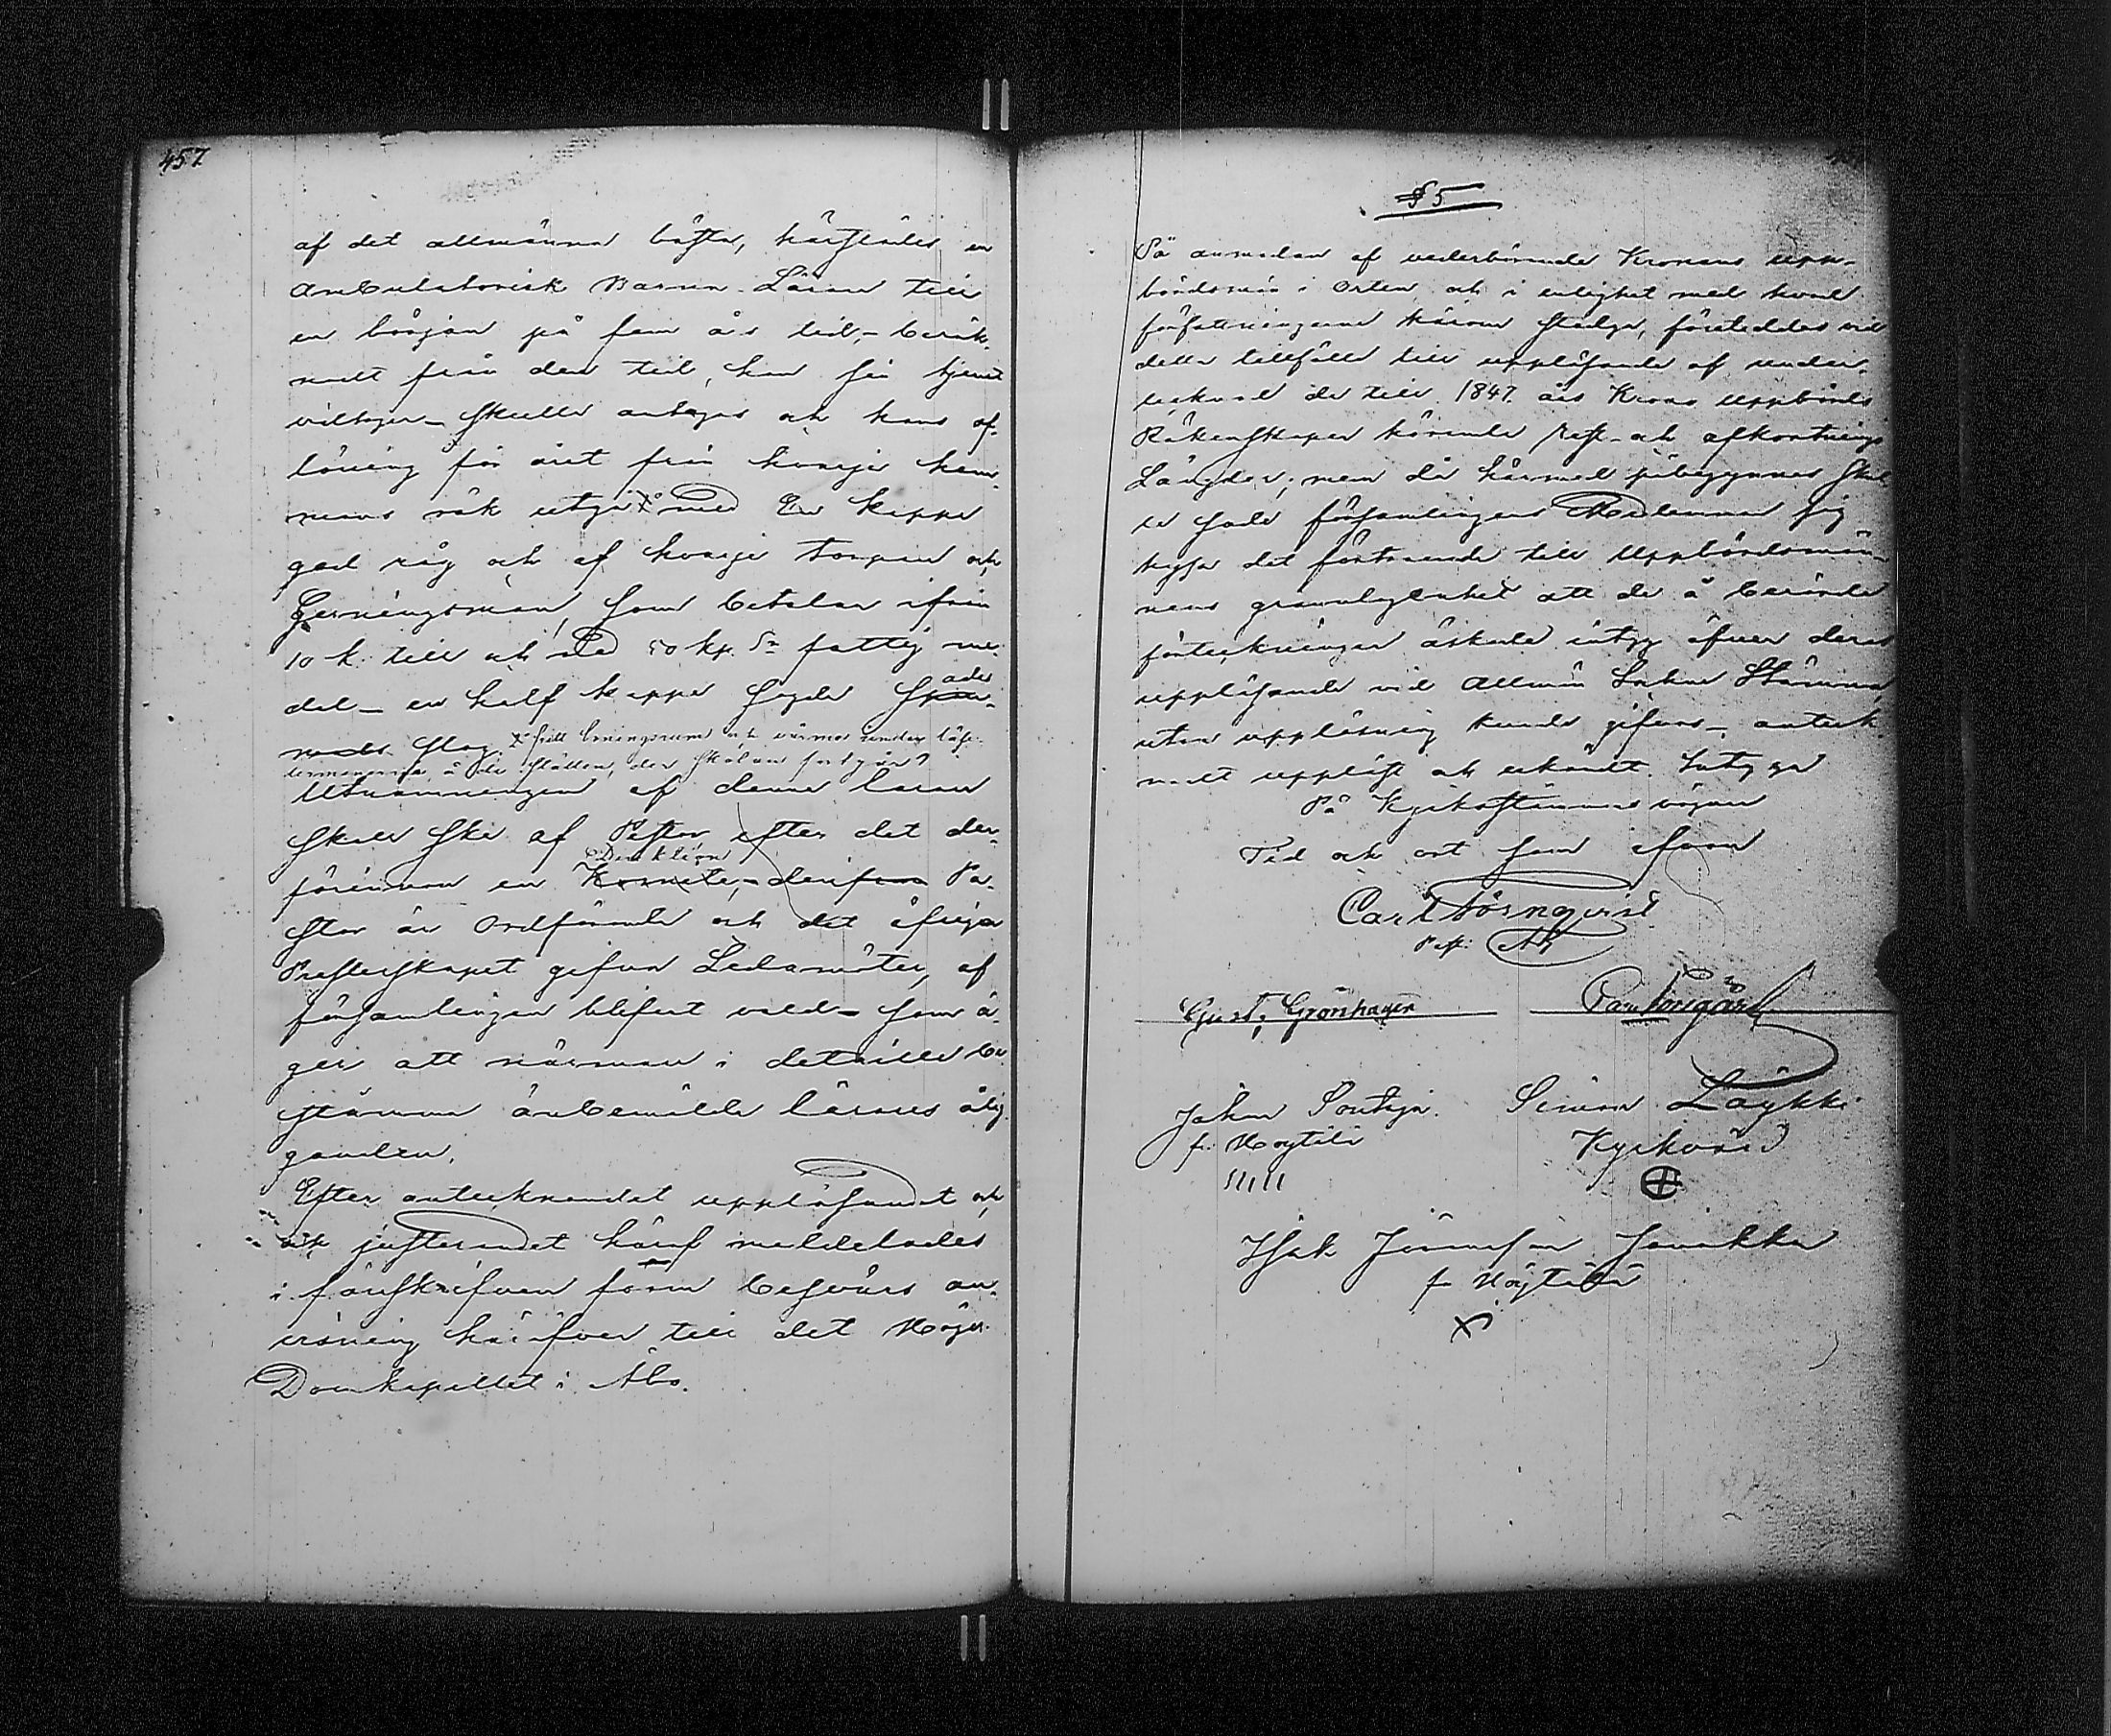 457
af det allmänna bästa, härstädes en
ambulatorisk Barna-Lärare till
en början på fem års tid,- beräk-
nadt från den tid, han sin tjenst
vidtager - skulle antagas och hans af-
löning för året från hvarje hem-
mans rök utgå X med En kappe
god råg och af hvarje torpare och
Gerningsman, som betalar ifrån
10 k. till och med 50 kp. Sr fattig me-
del - en half kappe sagde Span-
ade
nmåls slag. X fritt boningsrum och värme under läse-
terminerna å de ställen, der skolan fortgår
Utnämningen af denne lärare
skall ske af Pastor, efter det der-
Direktion
förinnan en Komité, - deri Pa-
stor är Ordförande och det öfriga
Presterskapet gifvna Ledamöter, af
församlingen blifvit vald - som ä-
ger att närmare i detaille be-
stämma ombemälde lärares ålig-
ganden.
Efter antecknandet uppläsandet och
justerandet häraf meddelades
i förskrifven form besvärs an-
visning häröfver till det Högv.
Domkapitlet i Åbo.
§ 5
På anmodan af vederbörande Kronans upp-
bördsmän i Orten och i enlighet med hvad
författningarne härom stadga, företeddes vid
detta tillfälle till uppläsande af under-
tecknad de till 1847 års Krono Uppbörds
Räkenskaper hörande Rest- och afkortnings
Längder; men då härmed påbegynnas skul-
le sade församlingens Medlemmar sig
hysa det förtroende till Uppbördsmän-
nens grannlagenhet att de å berörde
förteckningar äskade intyg öfver deras
uppläsande vid Allmän Sockne Stämma
utan uppläsning kunde gifvas -, anteck-
nadt uppläst och erkändt. Intyga
På Kyrkostämmans vägnar
Tid och ort som ofvan
Carl Törnqvist
Past:
Gust: Grönhagen
Johan
fr. Haytila
Simon Läykki
Kyrkovärd
Isak
fr
X